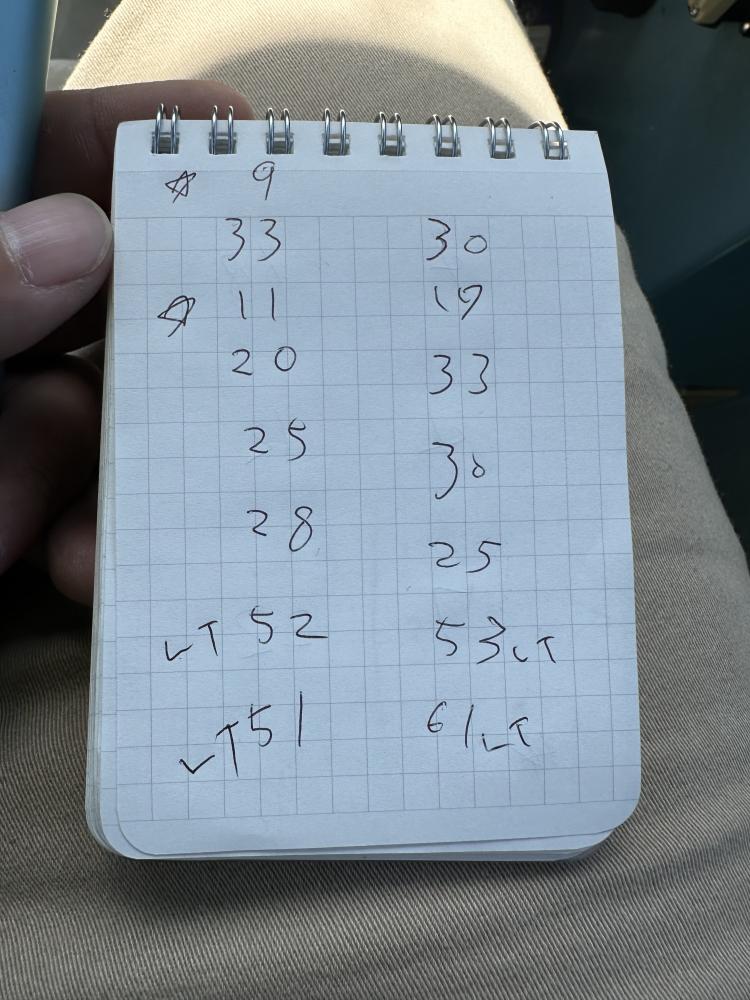 ☆ 9
33 30
☆ 11 19
20 33
25 30
28 25
LT 52 53 LT
LT 51 61 LT